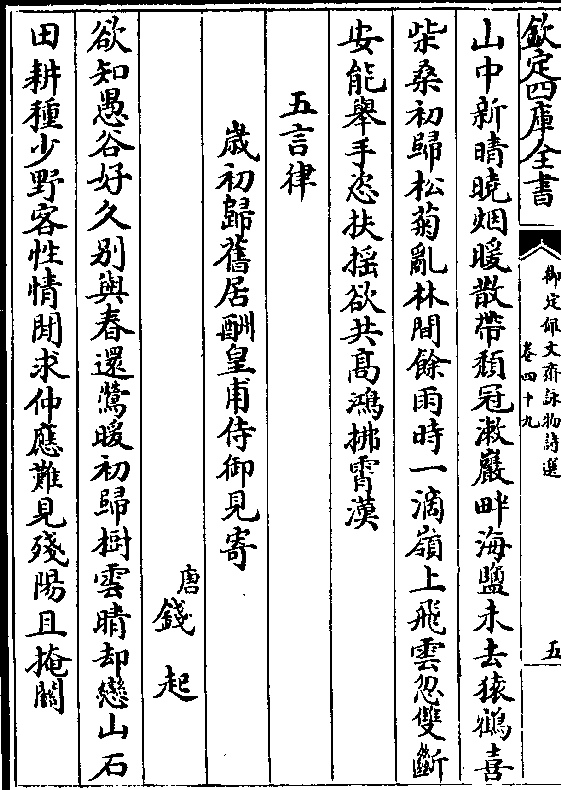 欽定四庫全書
御定佩文齋詠物詩選
卷四十九
五
山中新晴曉烟暖散帶頹冠漱巖畔海鹽未去猿鶴喜
柴桑初歸松菊亂林間餘雨時一滴嶺上飛雲忽雙斷
安能舉手恣扶摇欲共髙鴻拂霄漢
五言律
歲初歸舊居酬皇甫侍御見寄
唐錢起
欲知愚谷好久别與春還鶯暖初歸樹雲晴却戀山石
田耕種少野客性情閒求仲應難見殘陽且掩關